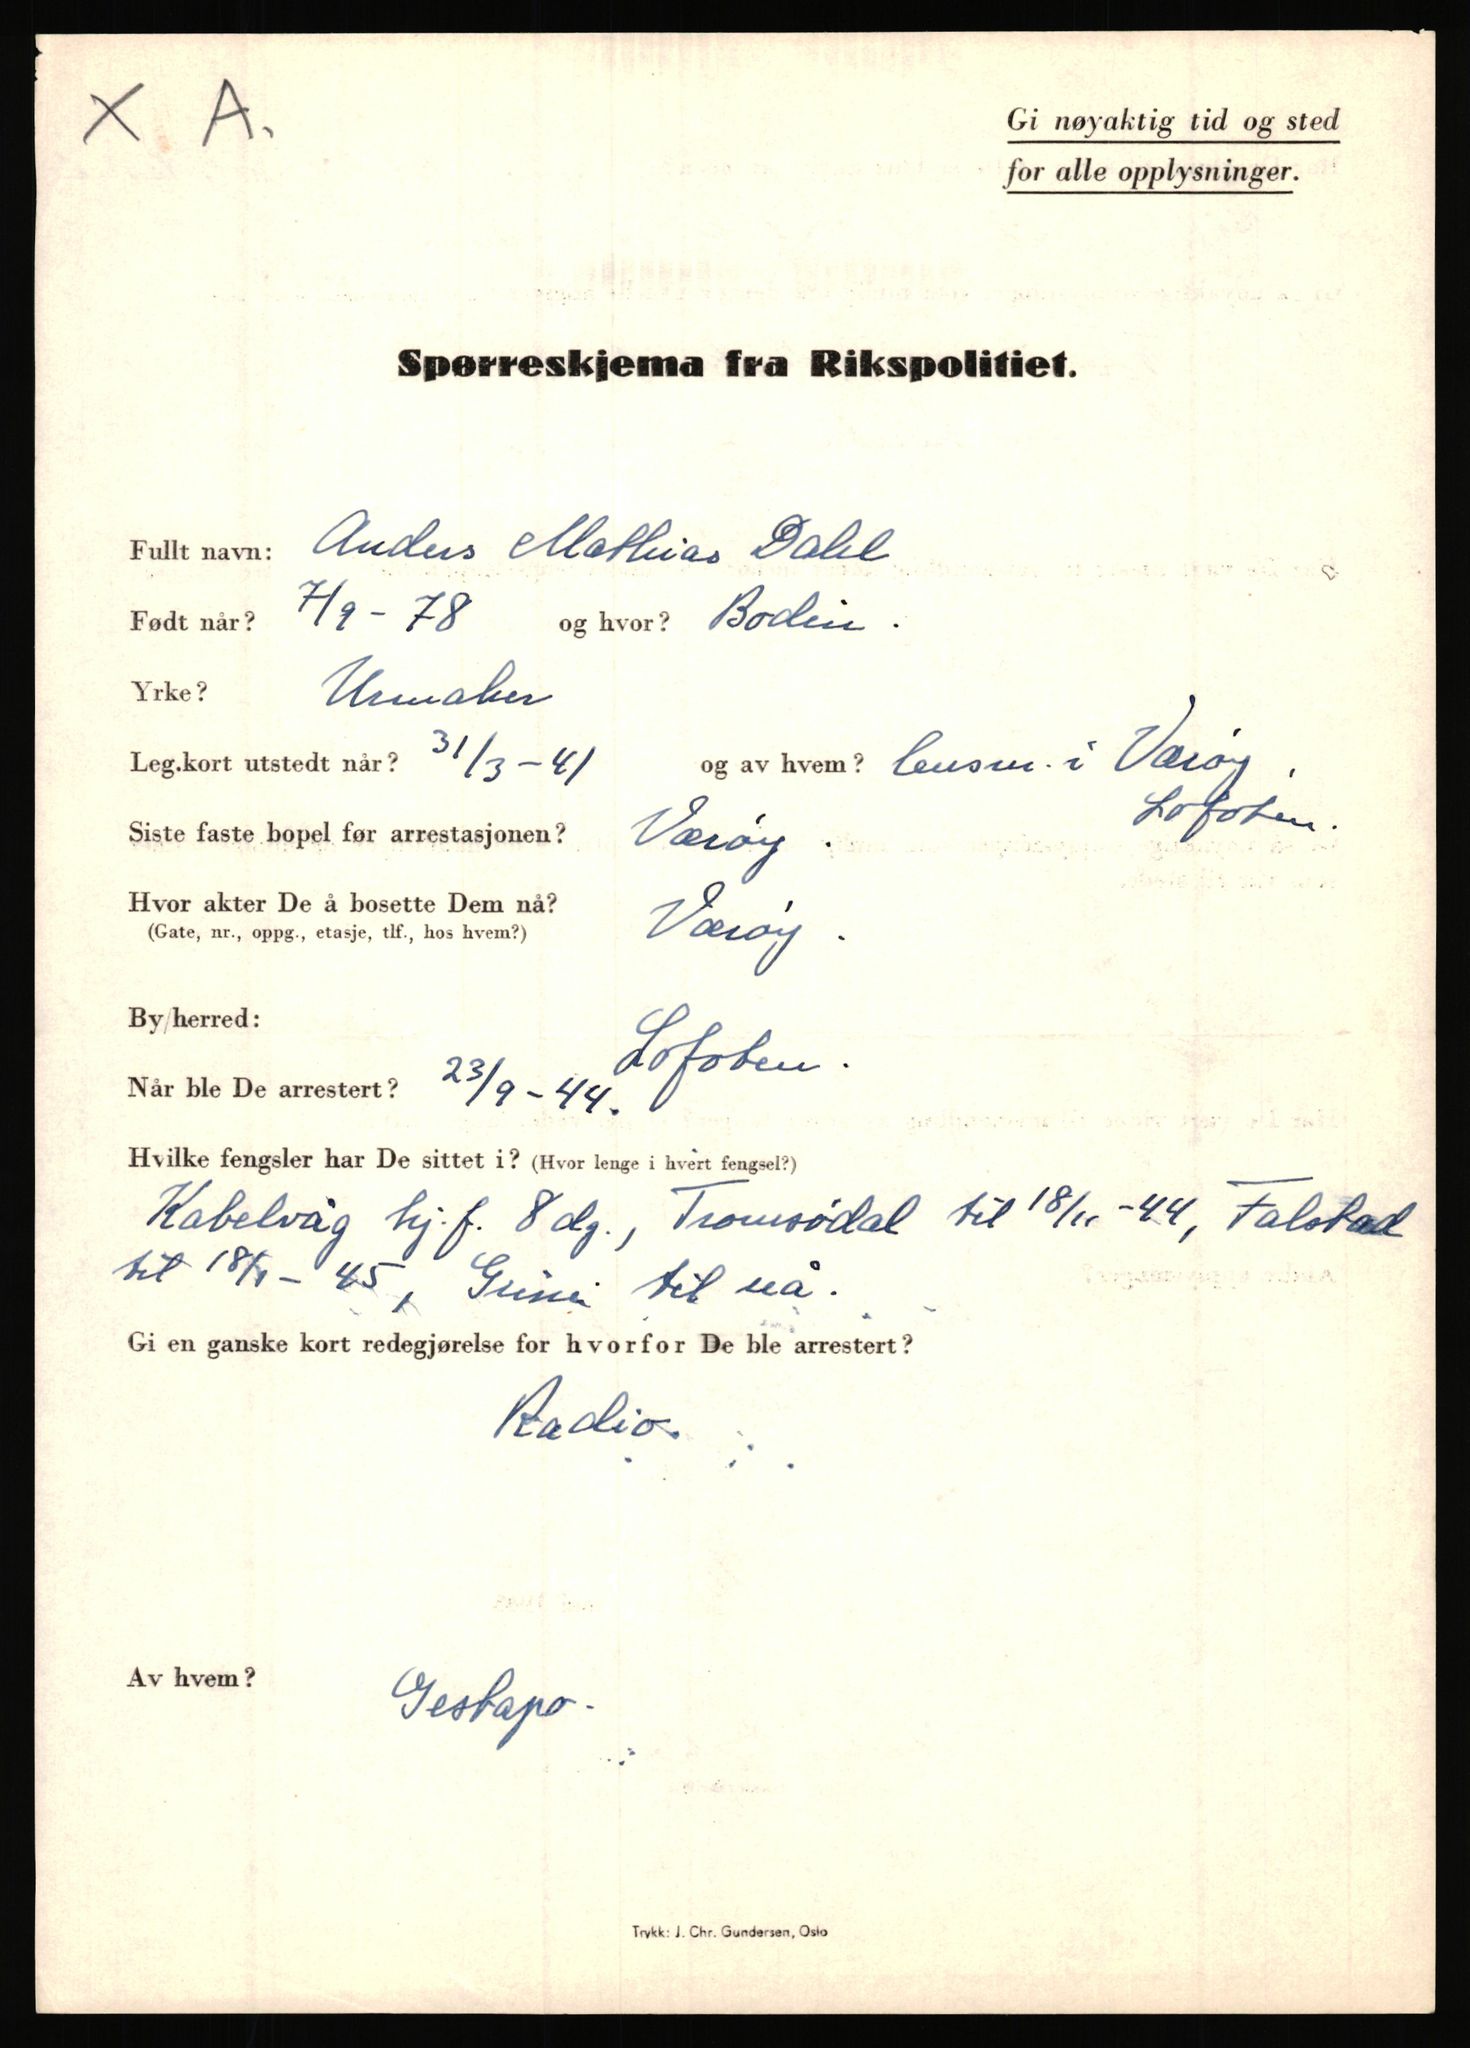 X A.
Gi nøyaktig tid og sted
for alle opplysninger.
Spørreskjema fra Rikspolitiet.
Fullt navn: Anders Mathias Dahl
Født når? 7/9 - 78 og hvor? Bodin.
Yrke? Urmaker
Leg.kort utstedt når? 31/3 - 41 og av hvem? lensm. i Værøy,
Lofoten.
Siste faste bopel før arrestasjonen? Værøy.
Hvor akter De å bosette Dem nå? Værøy.
(Gate, nr., oppg., etasje, tlf., hos hvem?)
By/herred: Lofoten.
Når ble De arrestert? 23/9 - 44.
Hvilke fengsler har De sittet i? (Hvor lenge i hvert fengsel?)
Kabelvåg hj. f. 8 dg., Tromsödal til 18/11 - 44, Falstad
til - 45, Grini til nå.
Gi en ganske kort redegjørelse for hvorfor De ble arrestert?
Radio.
Av hvem? Gestapo -
Trykk: J. Chr. Gundersen, Oslo